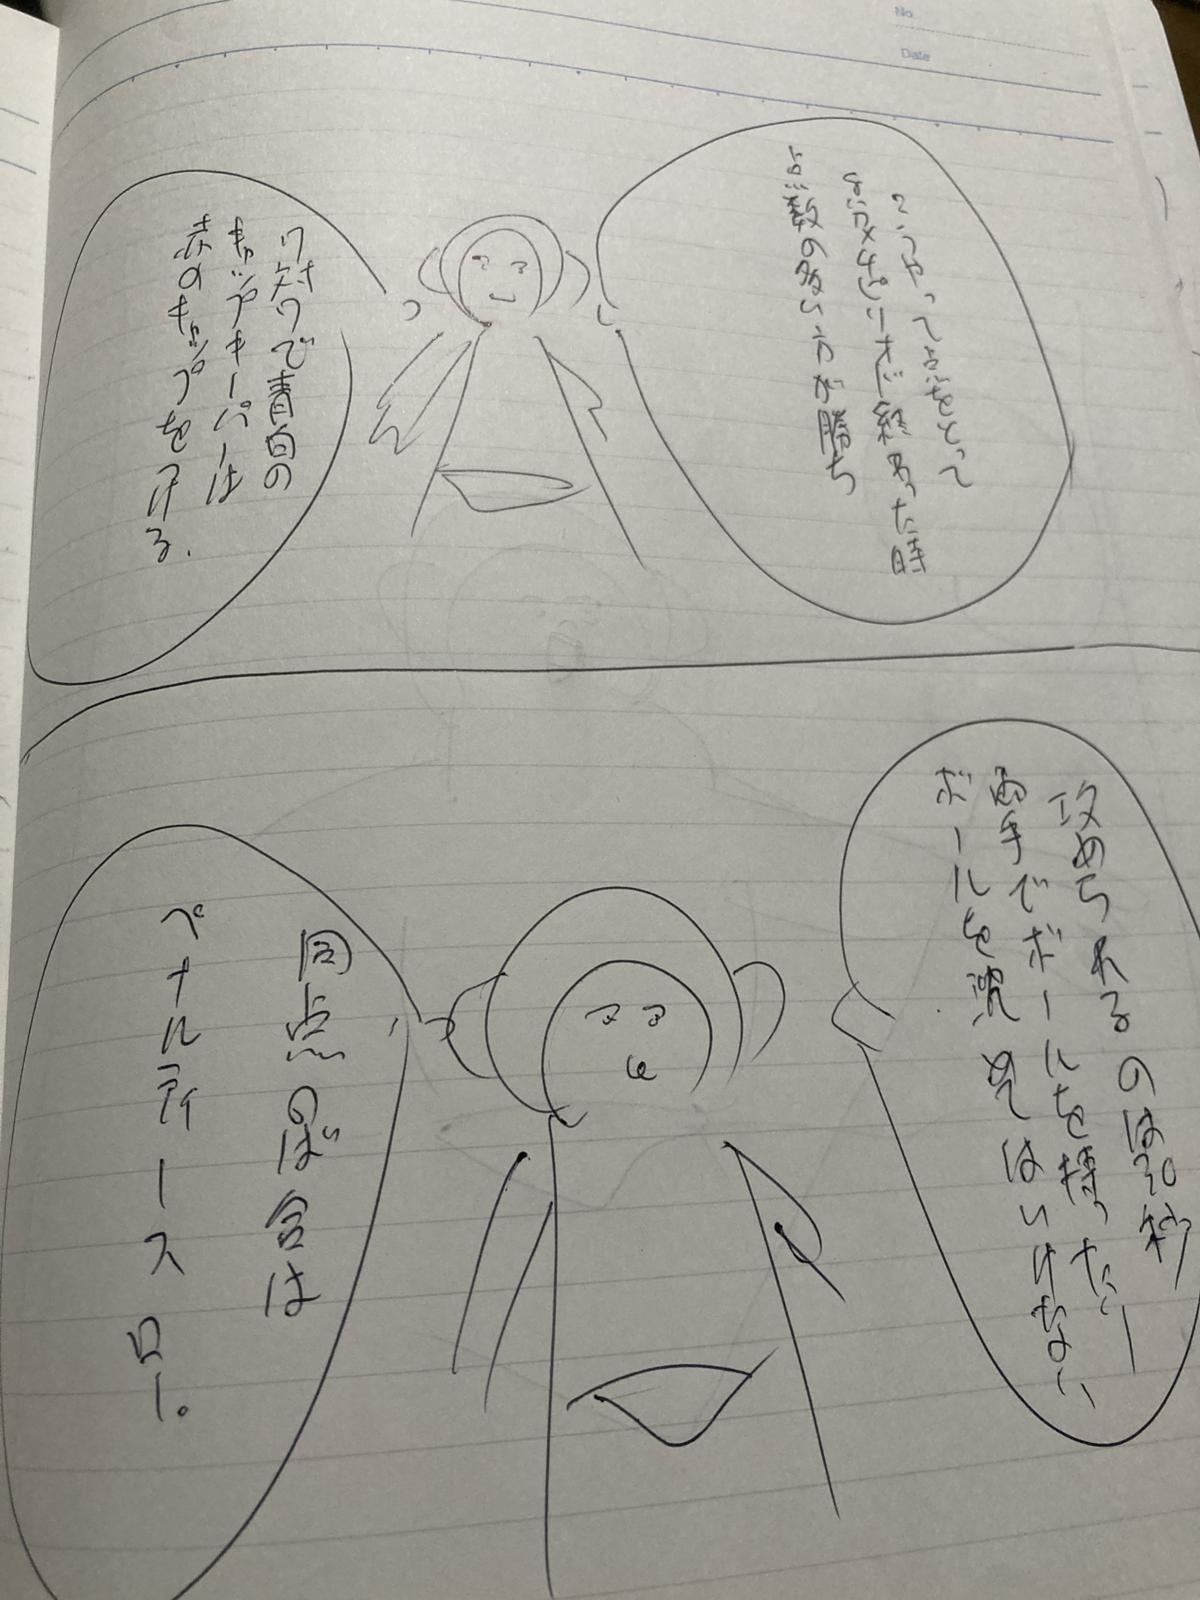 No.
Date
こうやって点をとって
8分×4ピリオド終わった時
点数の多い方が勝ち
7対7で青白の
キャップキーパーは
赤のキャップをつける.
攻められるのは30秒
両手でボールを持ったり
ボールを沈めてはいけない
同点のば合は
ペナルティースロー。